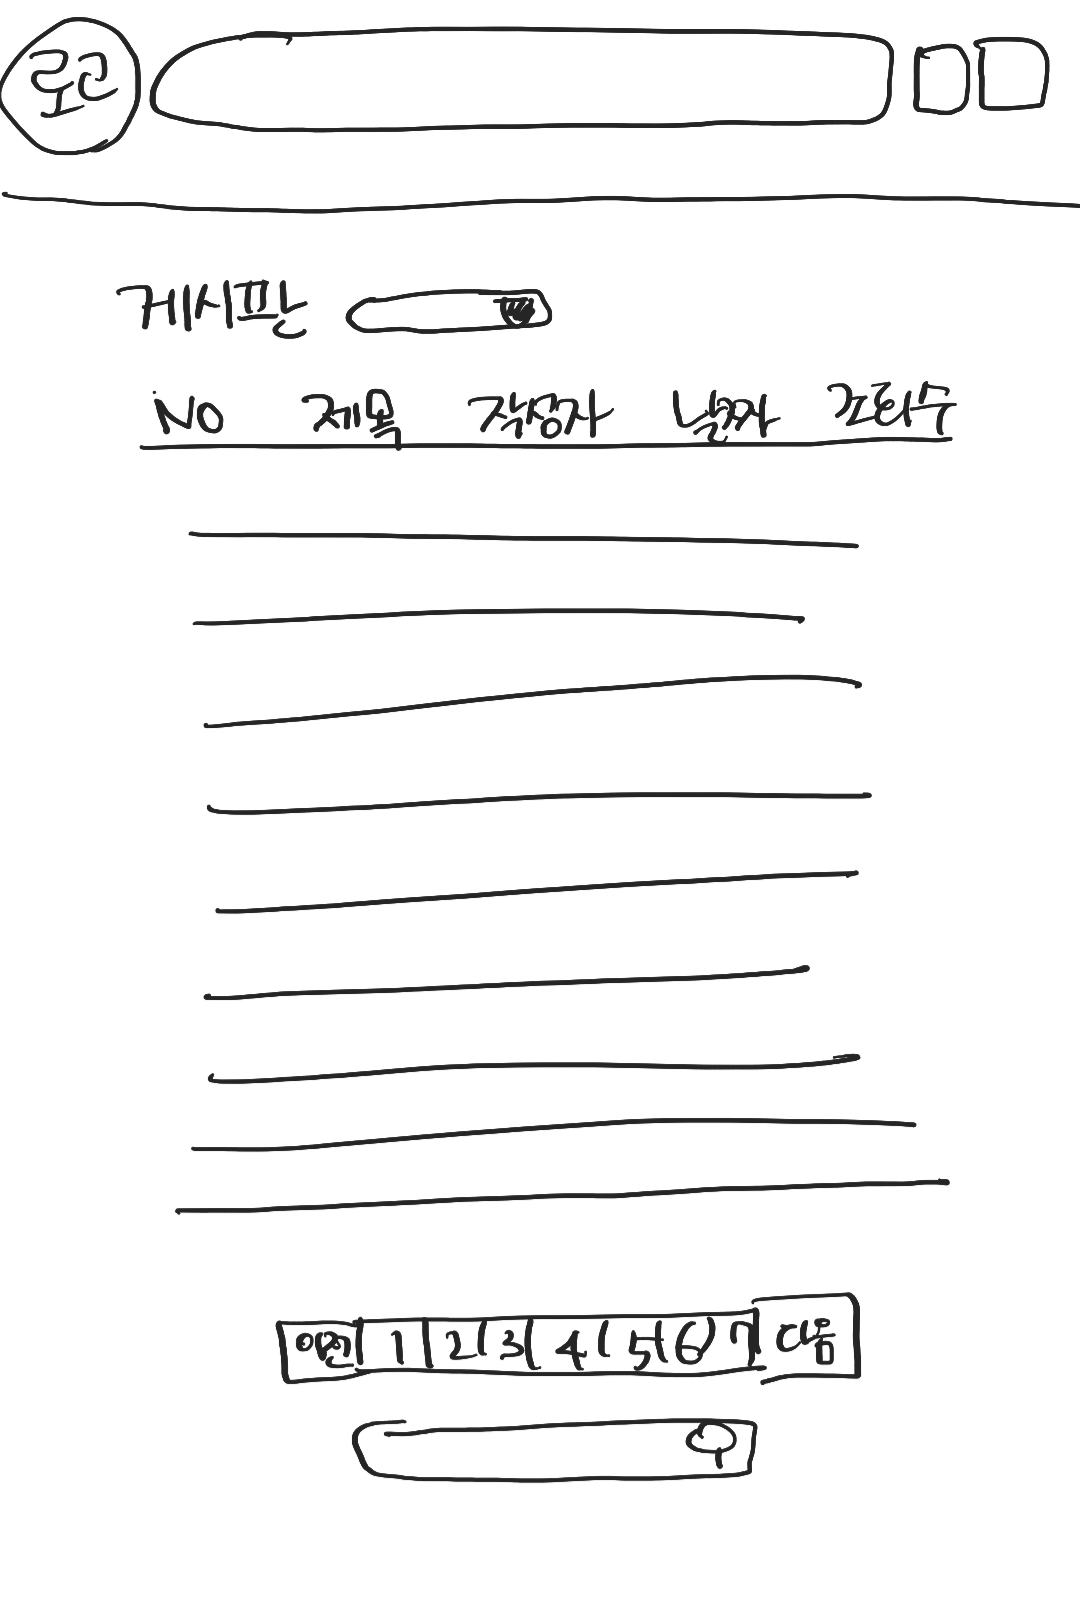 로고
게시판
NO 제목 작성자 날짜 조회수
이전 1 2 3 4 5 6 7 다음